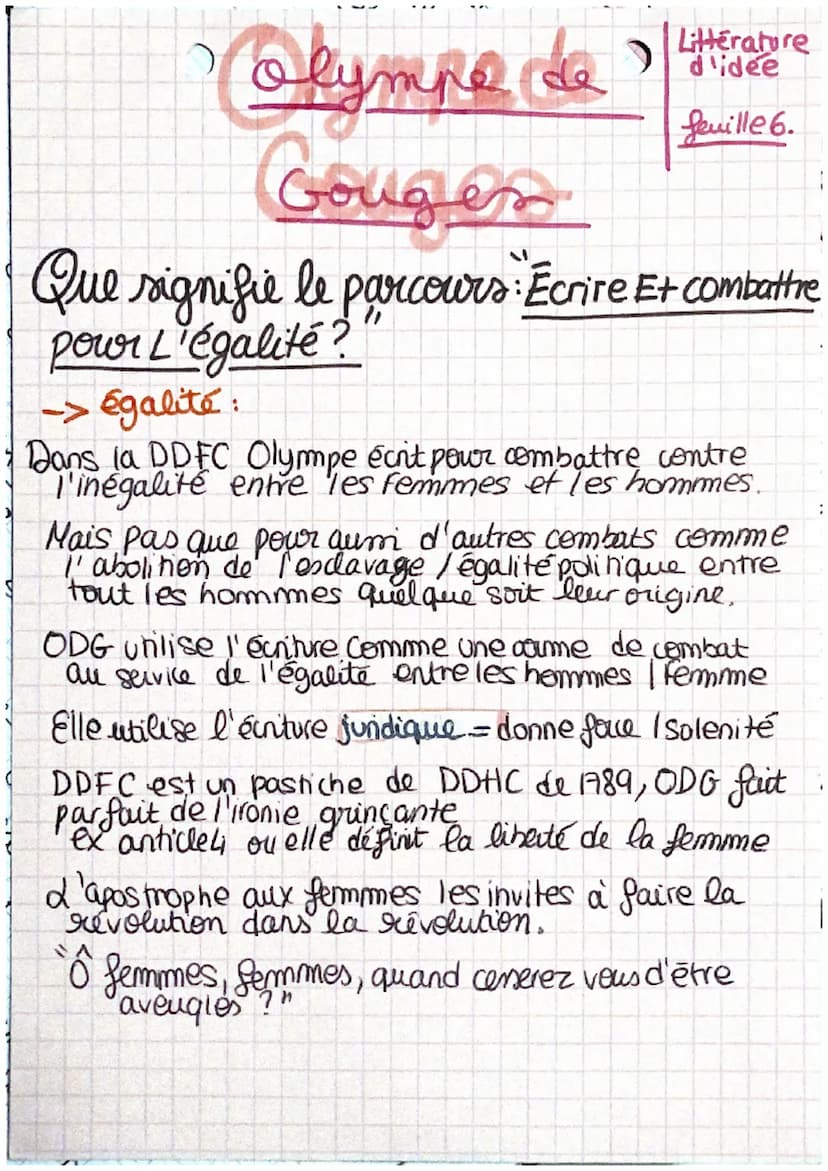 Olympe de
Gouges
Littérature
d'idée
feuille 6.
Que signifie le parcours: "Écrire Et combattre
pour L'égalité?"
-> égalité :
Dans la DDFC Olympe écrit pour combattre contre
l'inégalité entre les femmes et les hommes.
Mais pas que pour aussi d'autres combats comme
l'abolition de l'esclavage / égalité politique entre
tout les hommmes quelque soit leur origine.
ODG utilise l'écriture comme une arme de combat
au service de l'égalité entre les hommes / femme
Elle utilise l'écriture juridique = donne force / solenité
DDFC est un pastiche de DDHC de 1789, ODG fait
parfait de l'ironie grinçante
ex article 4 ou elle définit la liberté de la femme
L'apostrophe aux femmes les invites à faire la
révolution dans la révolution.
"Ô femmes, femmes, quand cesserez vous d'être
aveugles ?"